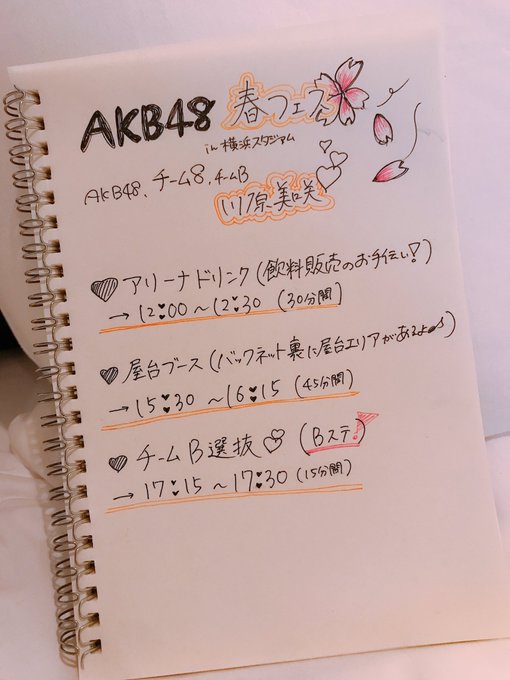 AKB48 春フェス
in 横浜スタジアム
AKB48、チーム8、チームB
川原美咲
アリーナドリンク(飲料販売のお手伝い!)
→ 12:00〜12:30 (30分間)
屋台ブース(バックネット裏に屋台エリアがあるよ♪)
→ 15:30 〜16:15 (45分間)
チームB選抜 (Bステ!)
→ 17:15 〜17:30 (15分間)